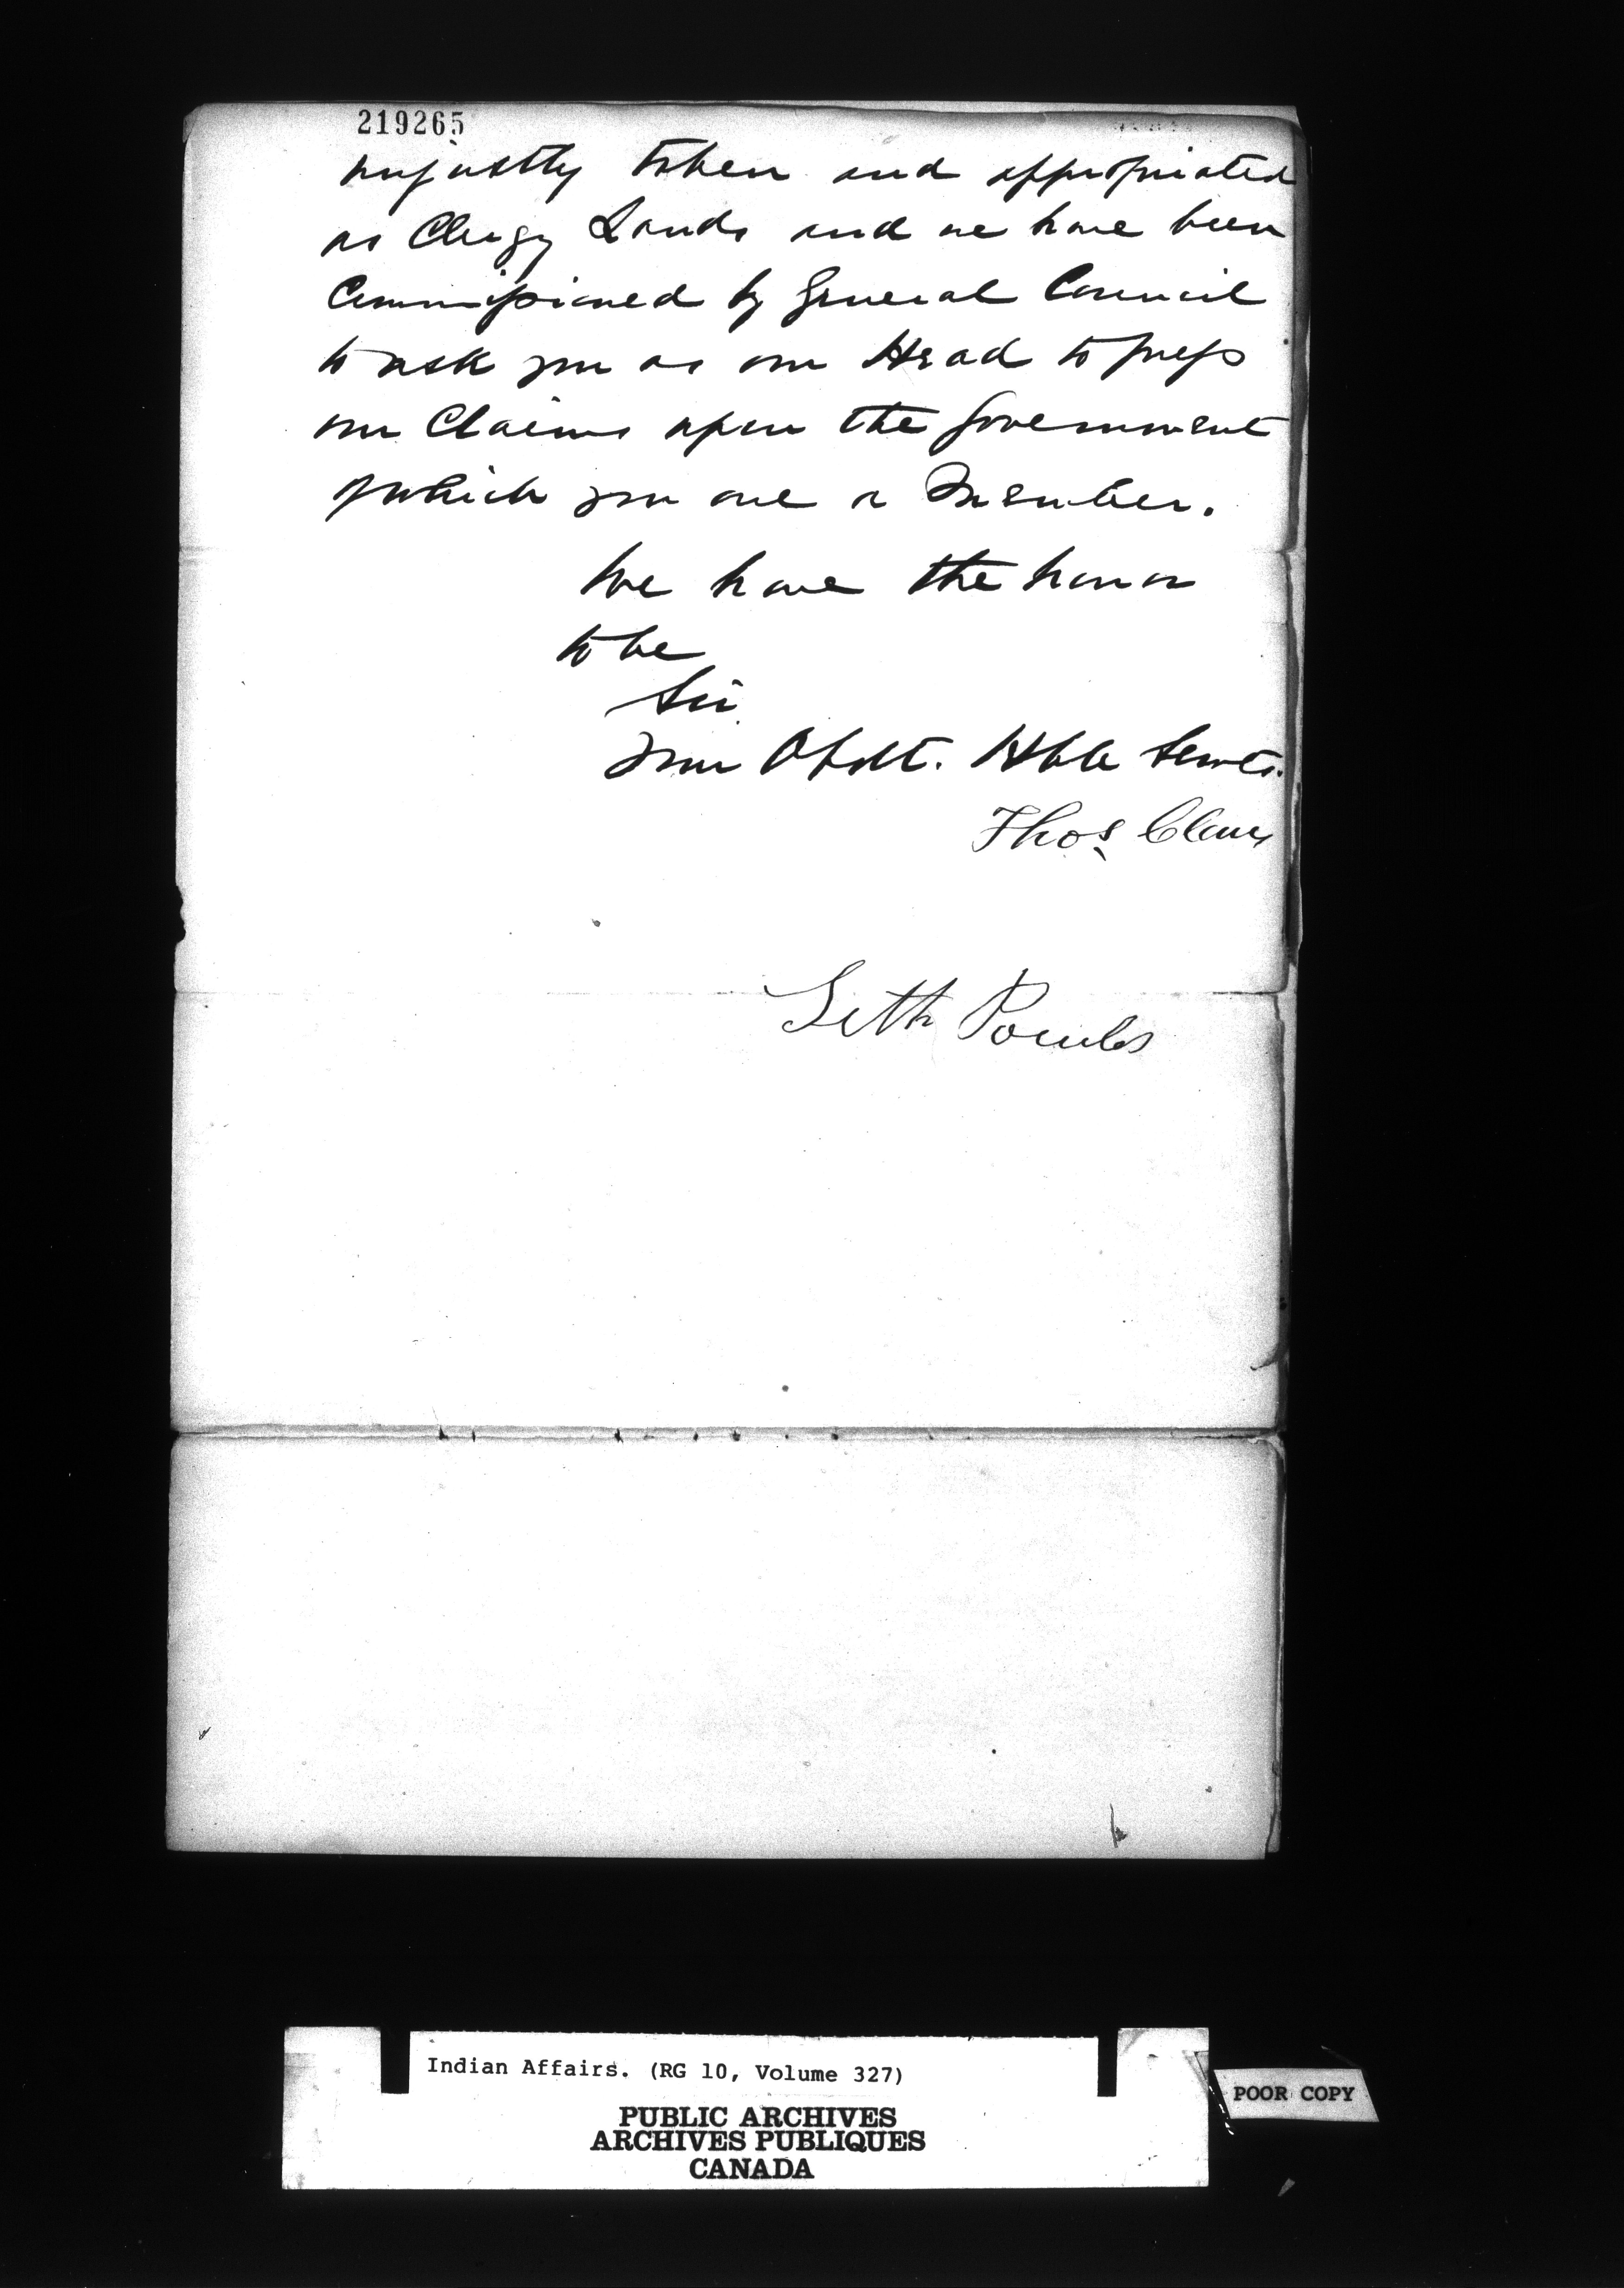 219265
unjustly taken and appropriated
as Clergy Lands and we have been
Commissioned by General Council
to ask you as our Head to press
our Claims upon the Government
of which you are a Member.
We have the honor
to be
Sir
Your Obdt. Hble Servts.
Thos Claus
Seth Powles
Indian Affairs. (RG 10, Volume 327)
PUBLIC ARCHIVES
ARCHIVES PUBLIQUES
CANADA
POOR COPY